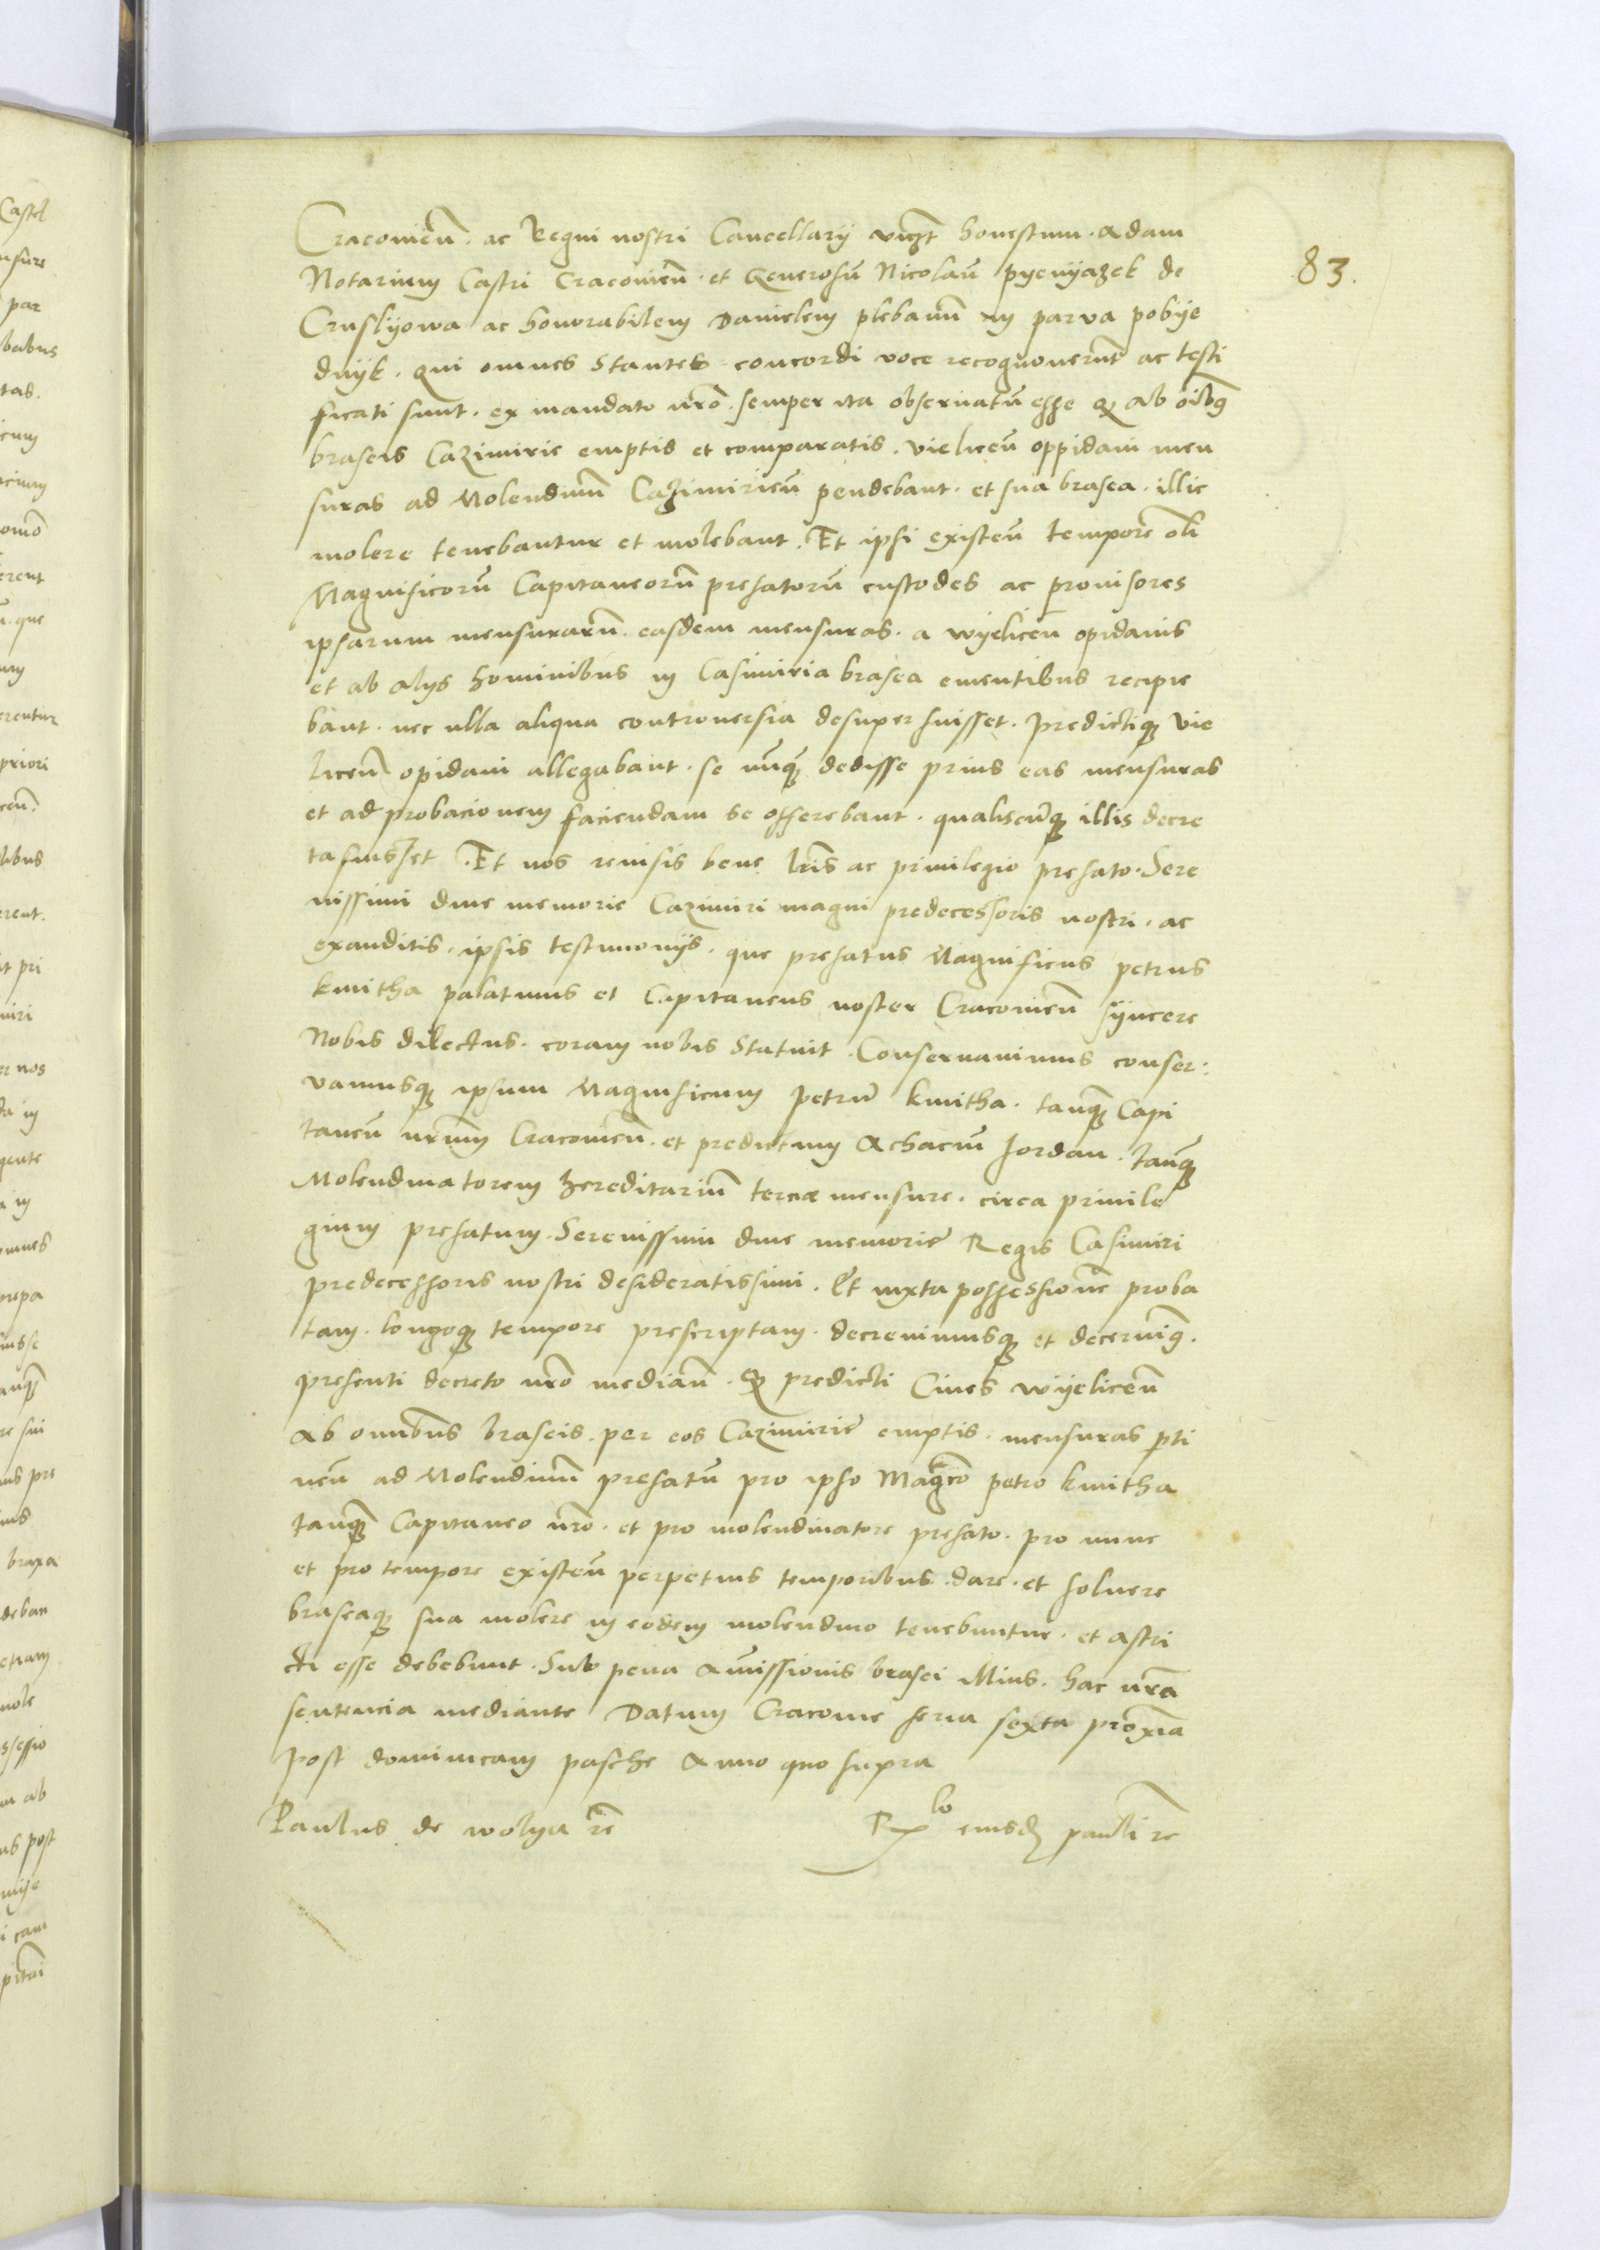 83.
Cracovien̄. ac Regni nostri Cancellarij viczt honestum. Adam
Notarium Castri Cracovien̄. et Generosū Nicolaū pyenyazek de
Cruslyowa ac honorabilem Danielem plebanū in parva pobye
dnyk. qui omnes stantes concordi voce recognoverūt ac testi
ficati sunt. ex mandato nrō. semper ita observatū esse q̄ ab oībg
braseis Cazimirie emptis et comparatis. vielicen̄ oppidani men
suras ad Molendinū Cazimirien̄ pendebant. et sua brasea. illic
molere tenebantur et molebant. Et ipsi existen̄ tempore olī
Magnificorū Capitaneorū prefatorū custodes ac provisores
ipsarum mensurarū. easdem mensuras. a wyelicen̄ opidanis
et ab alijs hominibus in Casimiria brasea ementibus recipie
bant. nec ulla aliqua controversia desuper fuisset. Predictiq; vie
licen̄ opidani allegabant. se nūq; dedisse prius eas mensuras
et ad probacionem faciendam se offerebant. qualiscūq; illis decre
ta fuisset. Et nos revisis bene lrīs ac privilegio prefato. Sere
nissimi dive memorie Cazimiri magni predecessoris nostri. ac
exauditis. ipsis testimonijs. que prefatus Magnificus petrus
kmitha palatinus et Capitaneus noster Cracovien̄ syncere
Nobis dilectus. coram nobis statuit. Conservavimus conser:
vamusq; ipsum Magnificum Petrū kmitha. tanq̄ Capi
taneū nrūm Cracovien̄. et predictum Achaciū Jordan. tanq̄
Molendinatorem hereditariū tercie mensure. circa privile
gium prefatum. Serenissimi dive memorie Regis Casimiri
predecessoris nostri desideratissimi. Et iuxta possessionē proba
tam. longoq; tempore prescriptam. decrevimusq; et decernimg.
presenti decreto nrō median̄. q̄ predicti Cives wyelicen̄
Ab omnibus braseis. per eos Cazimirie emptis. mensuras pti
nen̄ ad Molendinū prefatū pro ipso Magcō petro kmitha
tanq̄ Capitaneo nrō. et pro molendinatore prefato. pro nunc
et pro tempore existen̄ perpetuis temporibus. dare. et solvere
braseaq; sua molere in eodem molendino tenebuntur. et astri
cti esse debebunt. Sub pena amissionis brasei illius. hac nrā
sentencia mediante Datum Cracovie feria sexta proxīa
post dominicam pasche Anno quo supra
Paulus de wolya
eiusd pauli